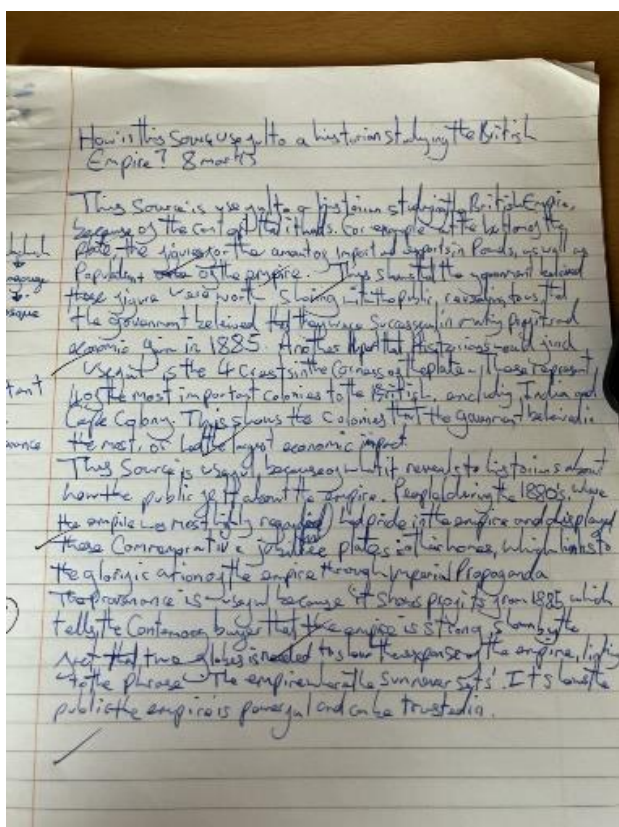 How is this Source useful to a historian studying the British
Empire? 8 marks
This Source is useful to a historian studying the British Empire,
because of the content that it holds. For example at the bottom of the
plate the figures for the amount of import and exports in Pounds, as well as
Population of the empire. This shows that the government believed
these figure were worth sharing with the public, revealing to us that
the government beleived that they were successful in making profit and
economic gain in 1885. Another part that Historians would find
useful is the 4 Crests in the Corners of the plate - these represent
4 of the most important colonies to the British, including India and
Cape Colony. This shows the Colonies that the Government beleived in
the most, or had the largest economic impact.
This Source is useful because of what it reveals to historians about
how the public felt about the empire. People during the 1880's, where
the empire was most highly regarded had pride in the empire and displayed
these Commemorative jubilee plates in their homes, which links to
the glorification of the empire through Imperial Propaganda
The provenance is useful because it shows profits from 1885 which
tells the Contemporary buyer that the empire is strong, shown by the
fact that two globes is needed to show the expanse of the empire, linking
to the phrase 'The empire where the Sun never sets'. It shows the
public the empire is powerful and can be trusted in.